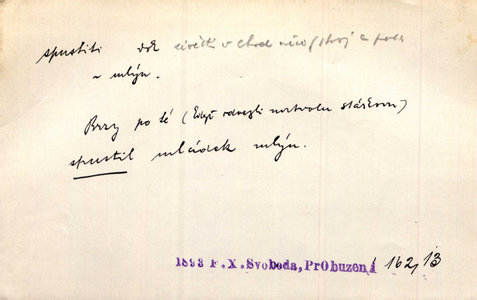 spustiti dok. uvésti v chod něco (stroj a pod.
~ mlýn.
Brzy po té (když odvezli mrtvolu stárkovu)
spustil mládek mlýn.
1893 F.X.Svoboda, Probuzení 162,13